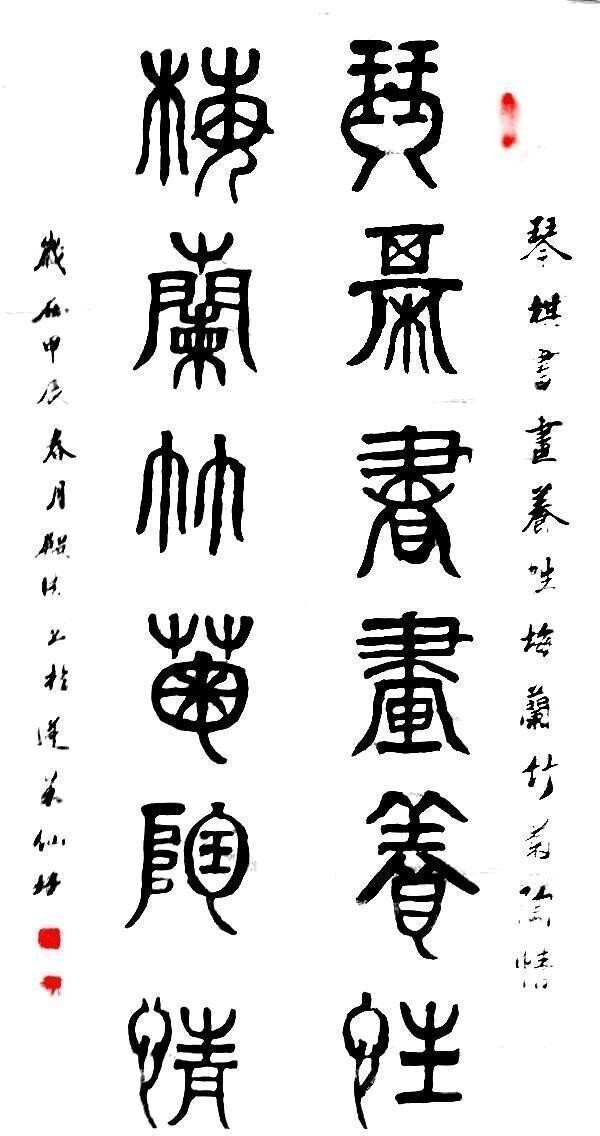 琴棋書畫養性梅蘭竹菊陶情
琴棊書畫養性
梅蘭竹菊陶情
歲在甲辰春月